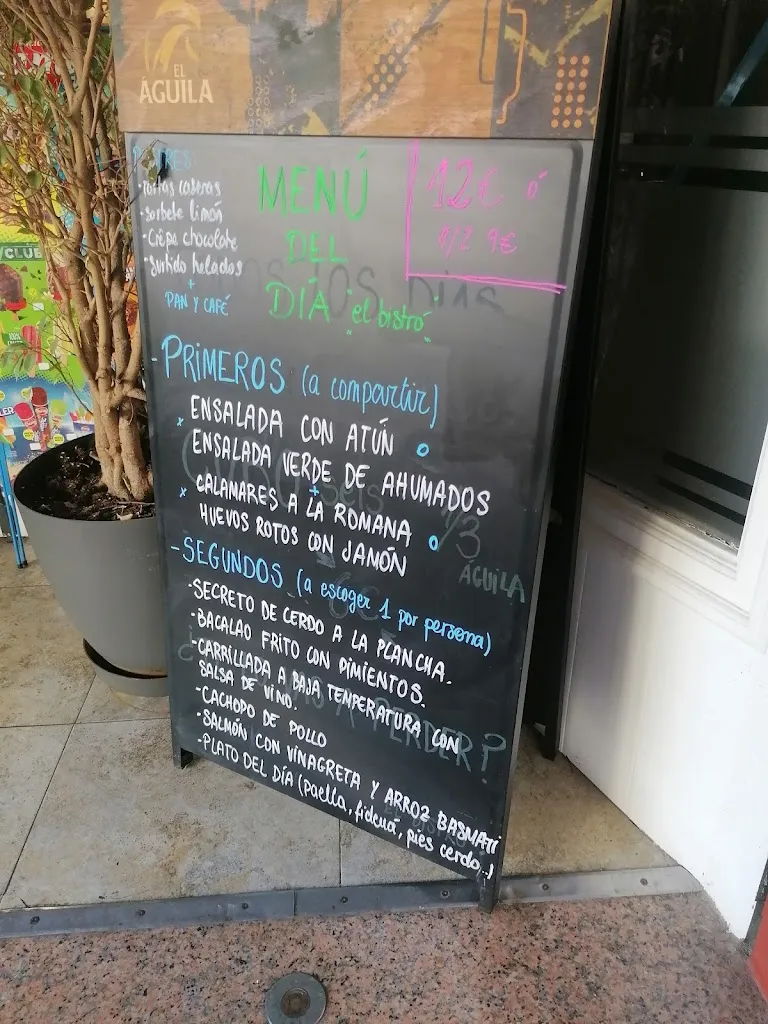 EL
ÁGUILA
POSTRES
·Tartas caseras
·Sorbete limón
·Crêpe chocolate
·Surtido helados
+
PAN Y CAFÉ
MENÚ
DEL
DÍA "el bistró"
12€ ó
1/2 9€
-PRIMEROS (a compartir)
x ENSALADA CON ATÚN o
ENSALADA VERDE DE AHUMADOS
+
x CALAMARES A LA ROMANA o
HUEVOS ROTOS CON JAMÓN
-SEGUNDOS (a escoger 1 por persona)
-SECRETO DE CERDO A LA PLANCHA.
-BACALAO FRITO CON PIMIENTOS.
-CARRILLADA A BAJA TEMPERATURA CON
SALSA DE VINO.
-CACHOPO DE POLLO
-SALMÓN CON VINAGRETA Y ARROZ BASMATI
-PLATO DEL DÍA (paella, fideuá, pies cerdo,..)
1/3
ÁGUILA
PERDER?